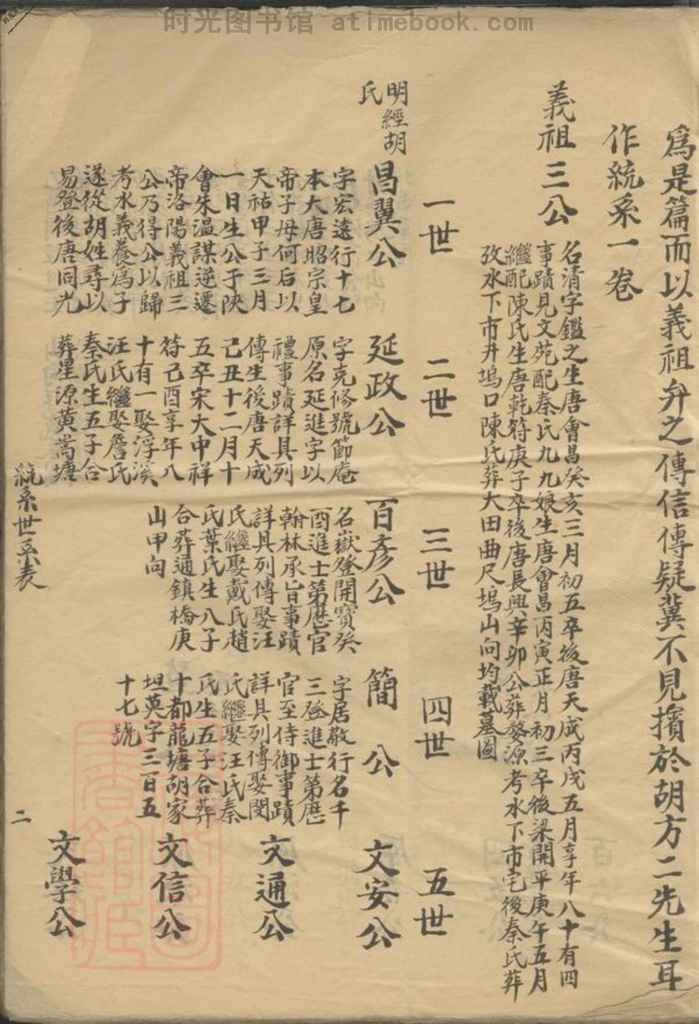 时光图书馆 atimebook.com
為是篇而以義祖弁之傳信傳疑冀不見擯於胡方二先生耳
作統系一卷
義祖三公
名清字鑑之生唐會昌癸亥三月初五卒後唐天成丙戌五月享年八十有四
事蹟見文苑配秦氏九九娘生唐會昌丙寅正月初三卒後梁開平庚午五月
繼配陳氏生唐乾符庚子卒後唐長興辛卯公葬婺源考水下市宅後秦氏葬
攷水下市井塢口陳氏葬大田曲尺塢山向均載墓圖
一世
二世
三世
四世
五世
明經胡
氏
昌翼公
字宏遠行十七
本大唐昭宗皇
帝子母何后以
天祐甲子三月
一日生公于陝
會朱溫謀逆遷
帝洛陽義祖三
公乃得公以歸
考水義養為子
遂從胡姓尋以
易登後唐同光
延政公
字克修號節庵
原名延進字以
禮事蹟詳具列
傳生後唐天成
己丑十二月十
五卒宋大中祥
符己酉享年八
十有一娶浮溪
汪氏繼娶詹氏
秦氏生五子合
葬星源黃蒿塘
百彥公
名嶽登開寶癸
酉進士第歷官
翰林承旨事蹟
詳具列傳娶汪
氏繼娶戴氏趙
氏葉氏生八子
合葬通鎮橋庚
山甲向
簡公
字居敬行名千
三登進士第歷
官至侍御事蹟
詳具列傳娶閔
氏繼娶汪氏秦
氏生五子合葬
十都龍塘胡家
坦英字三百五
十七號
文安公
文通公
文信公
文學公
統系世系表
二